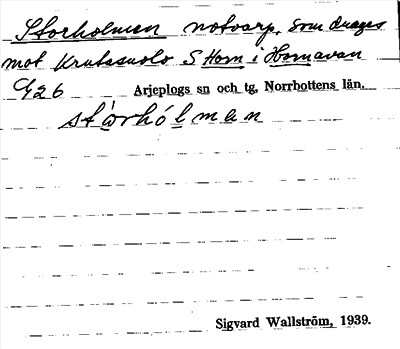 Storholmen notvarp, som drages
mot Krutasuolo S Horn i Hornavan
C/26 Arjeplogs sn och tg, Norrbottens län.
stórhólman
Sigvard Wallström, 1939.